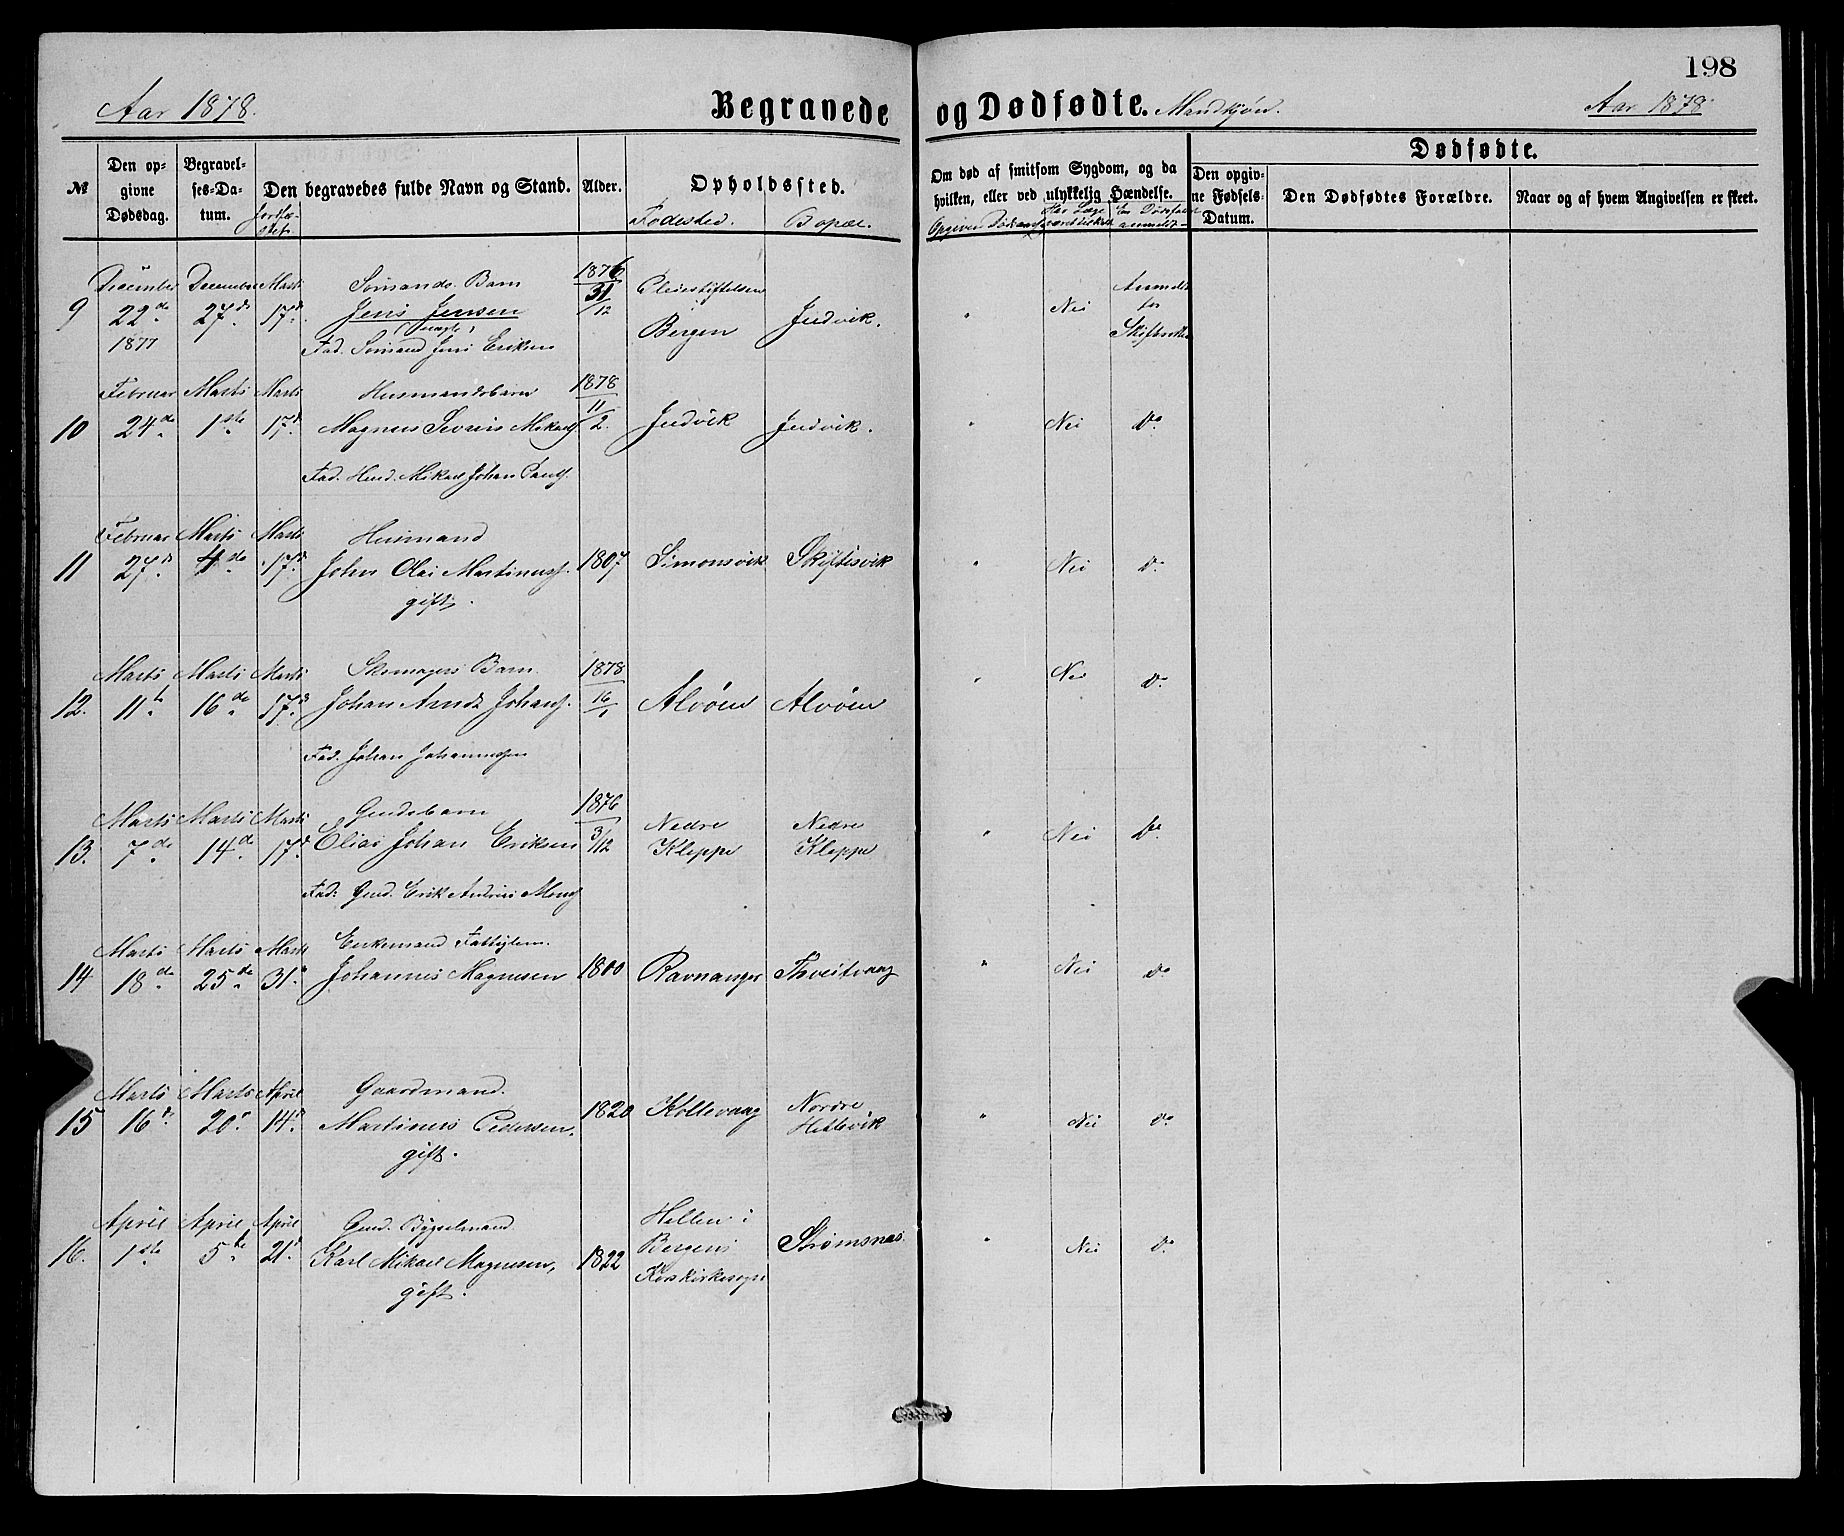 198
Aar 1878. Begravede og Dødfødte. Mandkjøn. Aar 1878.
№
Den opgivne Dødsdag.
Begravelses-Datum.
Jordfæstet
Den begravedes fulde Navn og Stand.
Alder.
Opholdssted.
Fødested. Bopæl.
Om død af smitsom Sygdom, og da
hvilken, eller ved ulykkelig Hændelse.
Opgiven Dødsaarsag
Har Læge
Er Dødsfaldet
anmeldt
Dødfødte.
Den opgivne Fødsels-Datum.
Den Dødfødtes Forældre.
Naar og af hvem Angivelsen er skeet.
December December Marts Sømands Barn 1876 Pleiestiftelsen Anmeldt
9 22de 27de 17de Jens Jensen 31/12 Bergen Indvik. " Nei for Skifteretten
1877 (uægte)
Fad. Sømand Jens Eriksen
Februar Marts Marts Husmandsbarn 1878
10 24de 1ste 17de Magnus Severin Mikals. 11/2 Indvik Indvik. " Nei Do
Fad. Husd. Mikael Johan Pauls.
Februar Marts Marts Husmand
11 27de 4de 17de John Olai Martinuss. 1807 Simonsvik Skiftesvik " Nei Do
gift.
Marts Marts Marts Skomagers Barn. 1878
12. 11te 16de 17de Johan Arndt Johans. 16/1 Alvøen Alvøen " Nei Do
Fad. Johan Johannessen
Marts Marts Marts Gmdsbarn 1876 Nedre Nedre
13. 7de 14de 17de Elias Johan Eriksen 3/12 Kleppe Kleppe " Nei Do
Fad: Gmd. Erik Andreas Mons.
Marts Marts Marts Enkemand Fattiglem.
14 18de 25de 31te Johannes Magnesen 1800 Ravnanger Tveitvaag " Nei Do
Marts Marts April Gaardmand. Nordre
15 16de 20de 14de Martinus Pedersen, 1820 Kollevaag Hetlevik " Nei Do
gift.
April April April Gmd. Bygselmand Hellen i
16. 1ste 5te 21de Karl Mikael Magnesen, 1822 Bergens Strømsnes " Nei Do
gift. Korskirkesogn